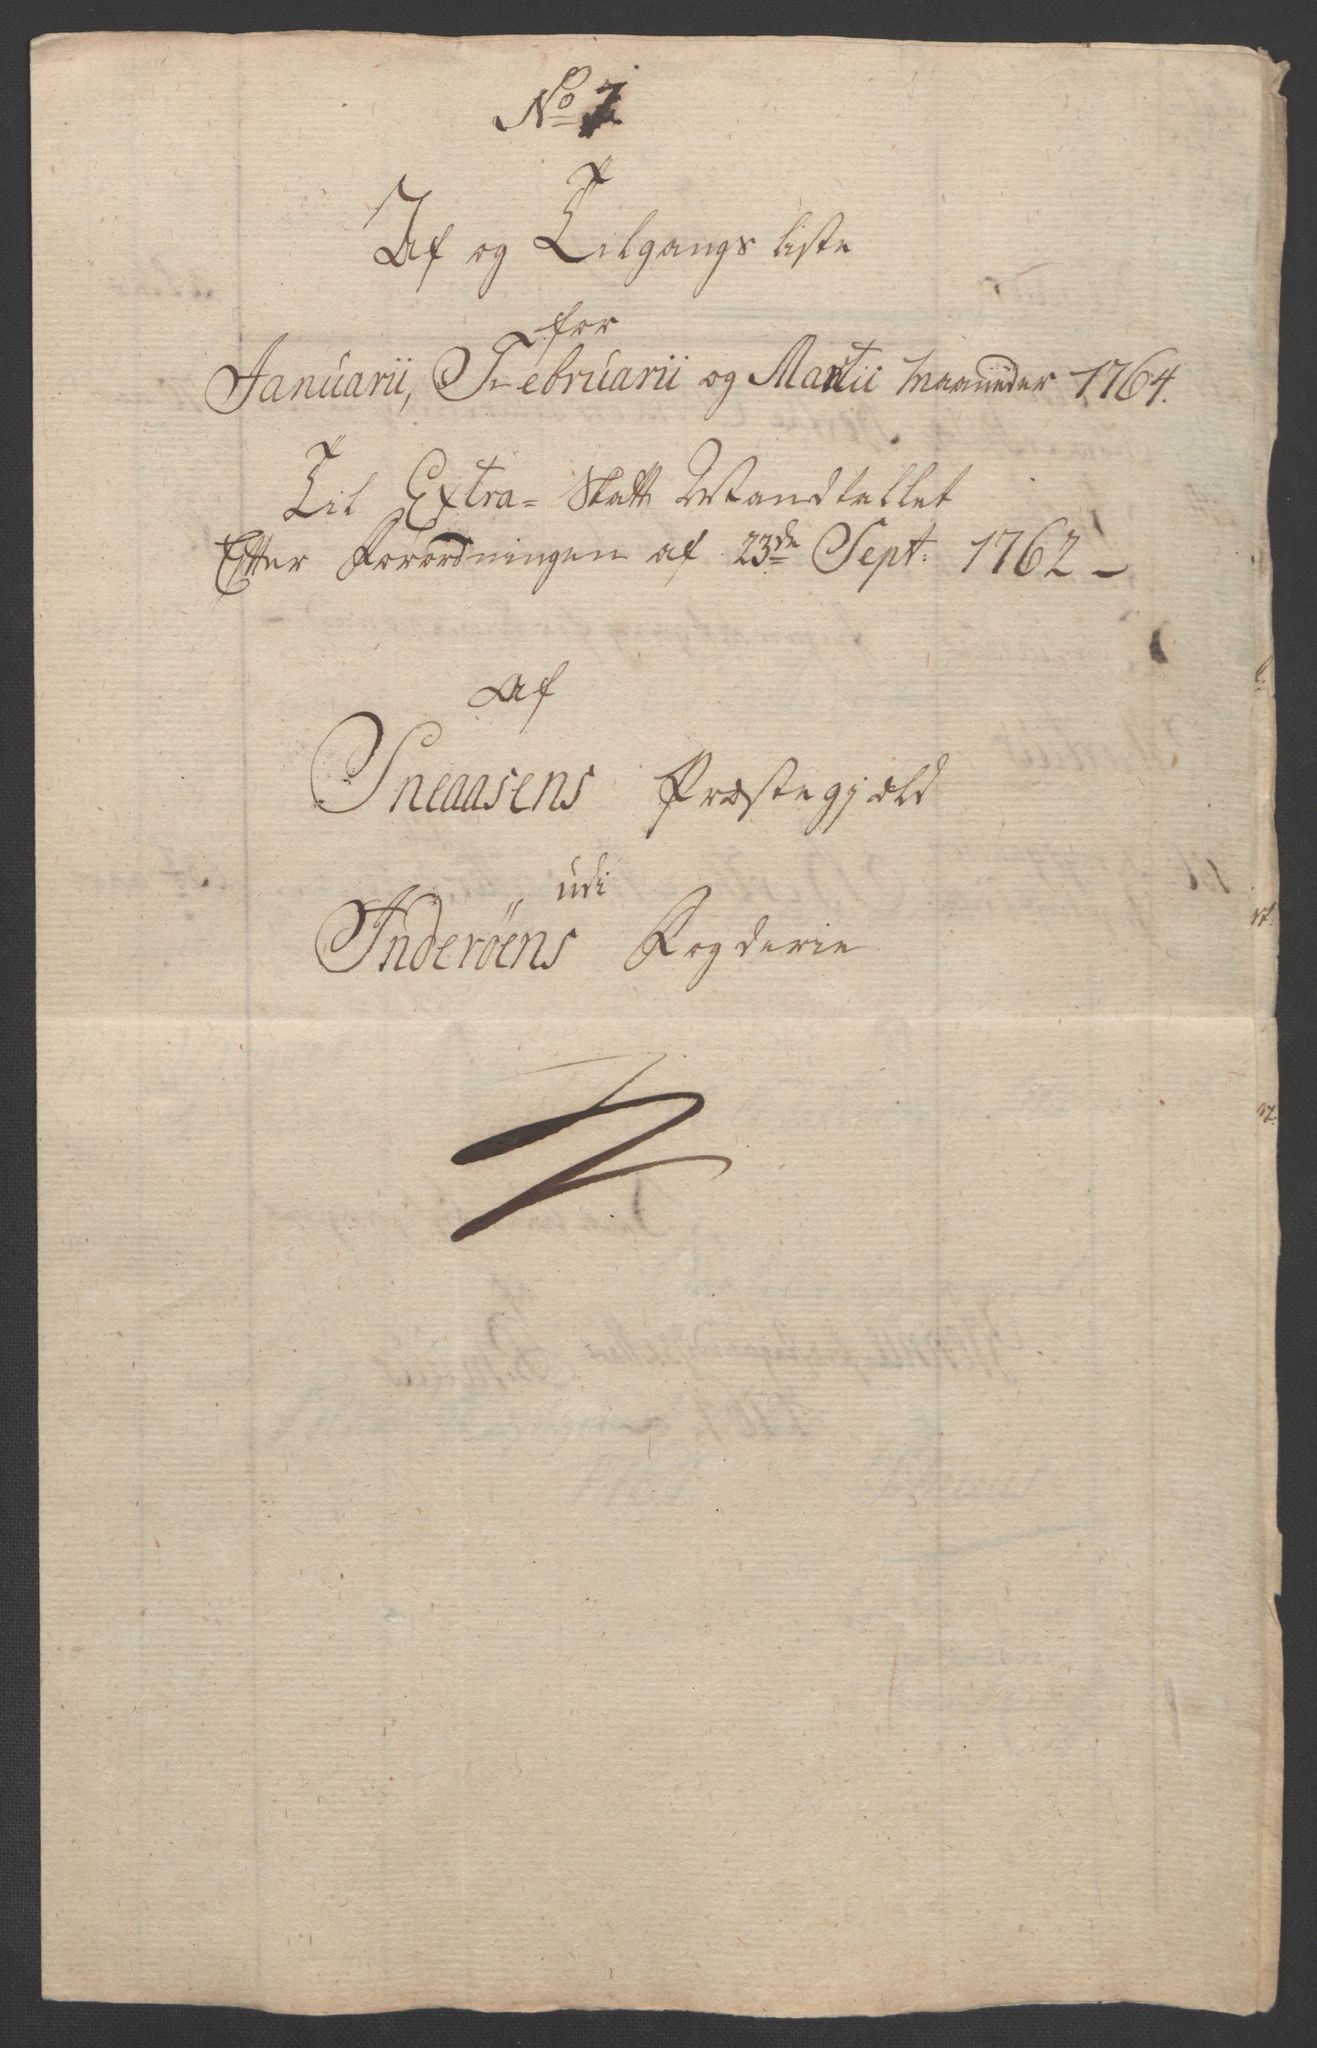 No 7
Af og Tilgangs liste
for
Januarii, Februarii og Martii Maaneder 1764.
Til Extra= Skatt Mandtallet
Efter Forordningen af 23de Sept: 1762 –
Af
Sneaasens Præstegjæld
udi
Inderöens Fogderie